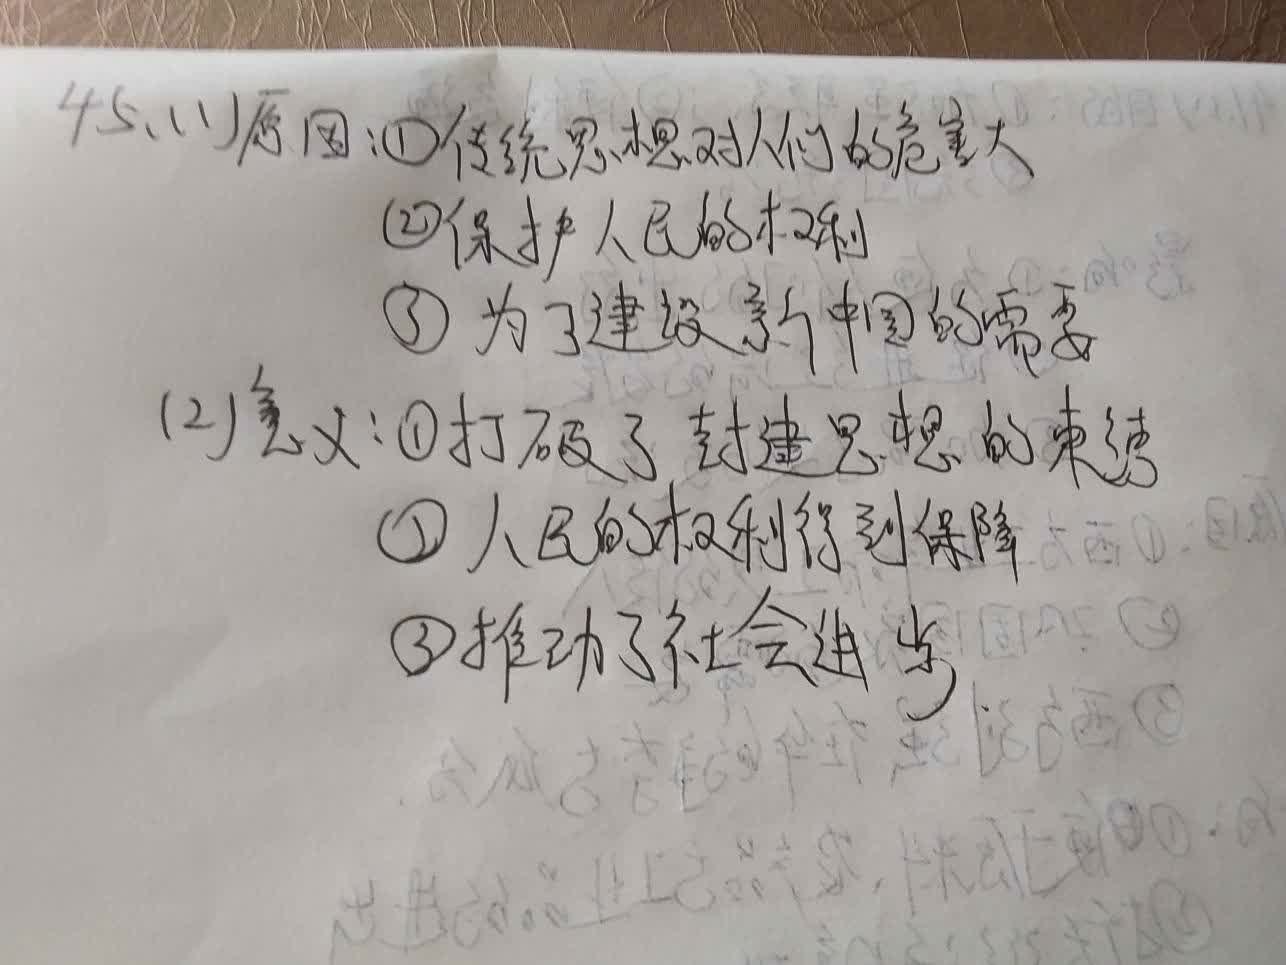 45、(1)原因:①传统思想对人们的危害大
②保护人民的权利
③为了建设新中国的需要
(2)意义:①打破了封建思想的束缚
②人民的权利得到保障
③推动了社会进步